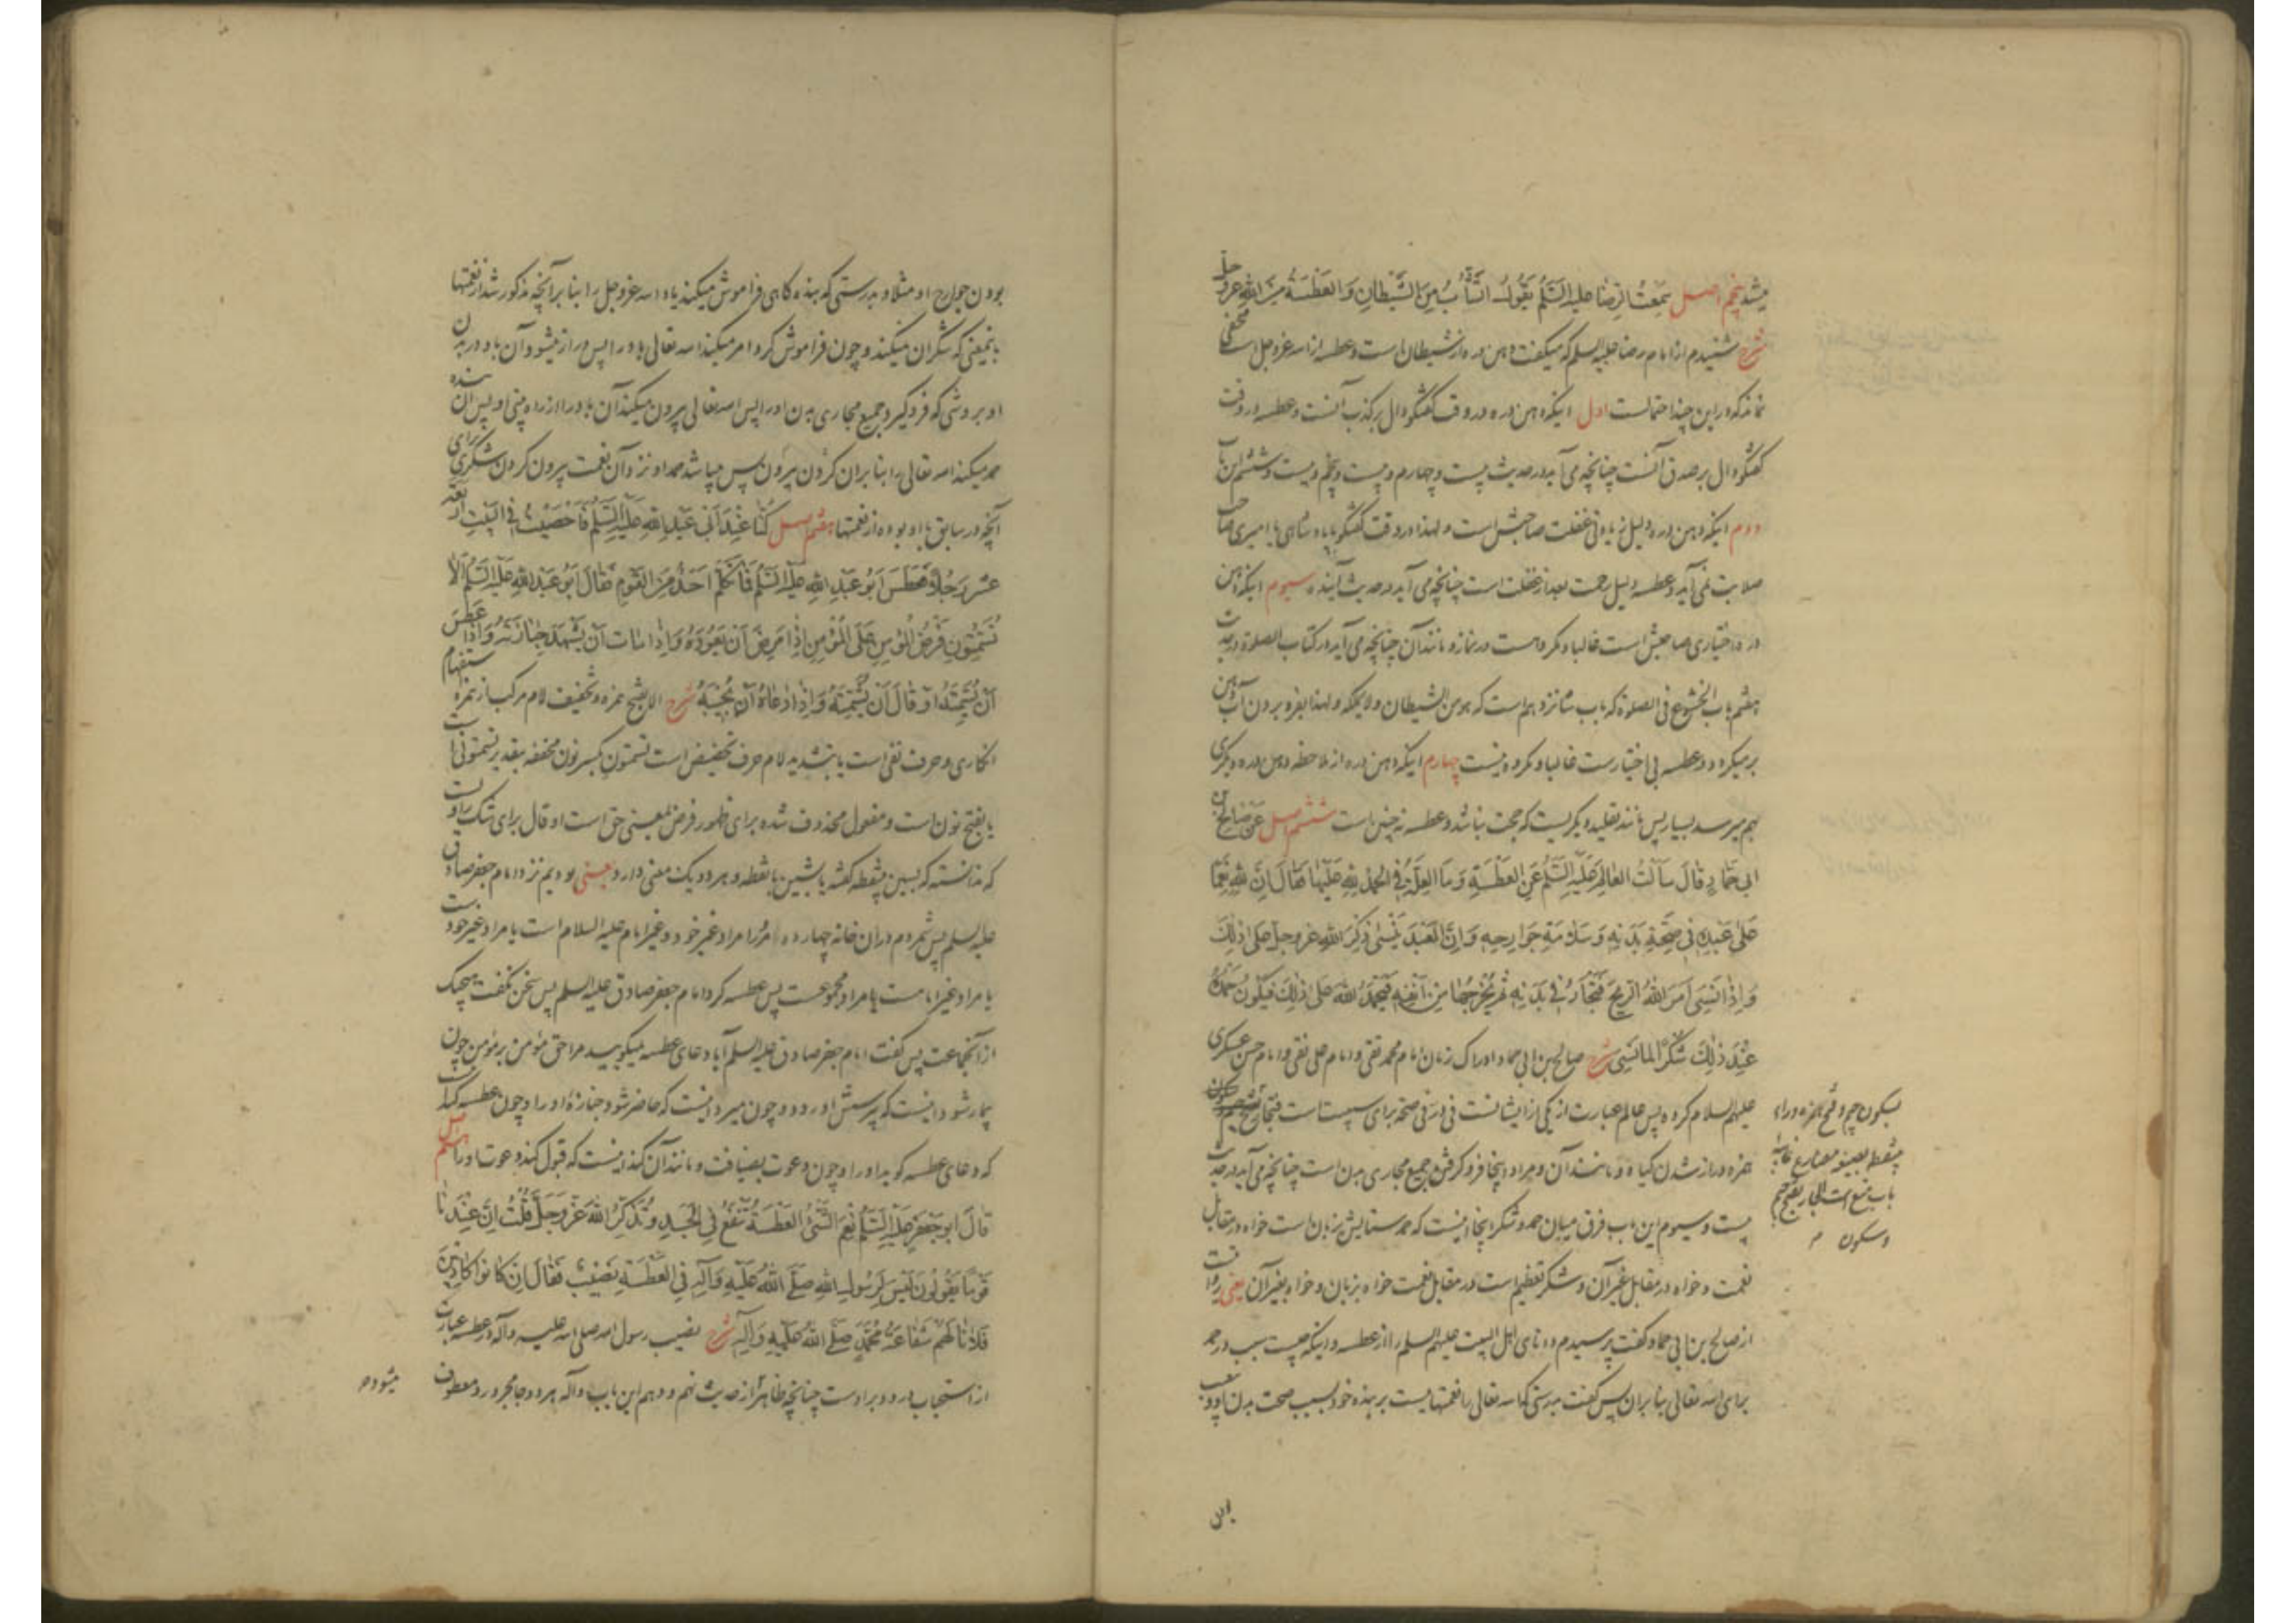 میشد پنجم اصل سَمِعْتُ الرِّضَا عَلَیْهِ السَّلَمُ یَقُولُ التَّثَأُّبُ مِنَ الشَّیْطَانِ وَالْعَطْسَةُ مِنَ اللّٰهِ عَزَّ وَجَلَّ
شرح شنیدم از امام رضا علیه السلم که میکفت دهن دره از شیطان است و عطسه از الله عزوجل است مخفی
نماند که در این چند احتمالست اول اینکه دهن دره در وقت کفتکو دال بر کذب آنست و عطسه در وقت
کفتکو دال بر صدق آنست چنانچه می آید در حدیث بیست و چهارم و بیست و پنجم و بیست و ششم این باب
دوم اینکه دهن دره دلیل زیادتی غفلت صاحبش است و لهذا در وقت کفتکو با پادشاهی یا امیری صاحب
صلابت نمی آید و عطسه دلیل رحمت بعد از غفلت است چنانچه می آید در حدیث آینده سیوم اینکه دهن
دره اختیاری صاحبش است غالبا و مکروهست در نماز و مانند آن چنانچه می آید در کتاب الصلوة در حدیث
هفتم باب الخشوع فی الصلوة که باب شانزدهم است که هو من الشیطان ولا یملکه و لهذا بفرو بردن آب دهن
بر میکردد و عطسه بی اختیارست غالبا و مکروه نیست چهارم اینکه دهن دره از ملاحظه دهن دره دیکری
بهم میرسد بسیار پس مانند تقلید دیکریست که حجت نباشد و عطسه نه چنین است ششم اصل عَنْ صَالِحِ بْنِ
اَبِی حَمَّادٍ قَالَ سَاَلْتُ الْعَالِمَ عَلَیْهِ السَّلَمُ عَنِ الْعَطْسَةِ وَمَا الْعِلَّةُ فِی الْحَمْدِ لِلّٰهِ عَلَیْهَا فَقَالَ اِنَّ لِلّٰهِ نِعَمًا
عَلٰی عَبْدِهِ فِی صِحَّةِ بَدَنِهِ وَسَلَامَةِ جَوَارِحِهِ وَاِنَّ الْعَبْدَ یَنْسٰی ذِکْرَ اللّٰهِ عَزَّ وَجَلَّ عَلٰی ذٰلِکَ
وَاِذَا نَسِیَ اَمَرَ اللّٰهُ الرِّیحَ فَتَجْاَرُ فِی بَدَنِهِ ثُمَّ یُخْرِجُهَا مِنْ اَنْفِهِ فَیَحْمَدُ اللّٰهَ عَلٰی ذٰلِکَ فَیَکُونُ حَمْدُهُ
عِنْدَ ذٰلِکَ شُکْرًا لِمَا نَسِیَ شرح صالح بن ابی حماد ادراک زمان امام محمد تقی و امام علی نقی و امام حسن عسکری
علیهم السلام کرده پس عالم عبارت از یکی از ایشانست فی در فی صحة برای سببیت است فتجأر
همزه دراز شدن کیاه و مانند آن و مراد اینجا فرو کرفتن جمیع مجاری بدن است چنانچه می آید در حدیث
بیست و سیوم این باب فرق میان حمد و شکر اینجا اینست که حمد ستایش بزبان است خواه در مقابل
نعمت و خواه در مقابل غیر آن و شکر تعظیم است در مقابل نعمت خواه بزبان و خواه بغیر آن یعنی روایت
از صالح بن ابی حماد کفت پرسیدم دانای اهل البیت علیهم السلم را از عطسه و اینکه چیست سبب در حمد
برای الله تعالی بنا بران پس کفت بدرستی که الله تعالی را نعمتهاست بر بنده خود بسبب صحت بدن او و بی عیب
بسکون جیم و فتح همزه و راء
بینقطه بصیغه مضارع غایبه
باب منع است الجأر بفتح جیم
و سکون
این
بودن جوارح او مثلا و بدرستی که بنده کاهی فراموش میکند یاد الله عزوجل را بنا بر آنچه مذکور شد از نعمتها
باینمعنی که شکر آن میکند و چون فراموش کرد امر میکند الله تعالی باد را پس دراز میشود آن باد در بدن
او بروشی که فرو کیرد جمیع مجاری بدن او را پس الله تعالی بیرون میکند آن باد را از راه بینی او پس آن بنده
حمد میکند الله تعالی را بنا بران کردن بیرون پس میباشد حمد او نزد آن نعمت بیرون کردن شکری برای
آنچه در سابق با او بوده از نعمتها هفتم اصل کُنَّا عِنْدَ اَبِی عَبْدِ اللّٰهِ عَلَیْهِ السَّلَمُ فَاَحْصَیْتُ فِی الْبَیْتِ اَرْبَعَةَ
عَشَرَ رَجُلًا فَعَطَسَ اَبُو عَبْدِ اللّٰهِ عَلَیْهِ السَّلَمُ فَمَا تَکَلَّمَ اَحَدٌ مِنَ الْقَوْمِ فَقَالَ اَبُو عَبْدِ اللّٰهِ عَلَیْهِ السَّلَمُ اَلَا
تُسَمِّتُونَ فَرْضُ الْمُؤْمِنِ عَلَی الْمُؤْمِنِ اِذَا مَرِضَ اَنْ یَعُودَهُ وَاِذَا مَاتَ اَنْ یَشْهَدَ جَنَازَتَهُ وَاِذَا عَطَسَ
اَنْ یُسَمِّتَهُ اَوْ قَالَ اَنْ یُشَمِّتَهُ وَاِذَا دَعَاهُ اَنْ یُجِیبَهُ شرح الا بفتح همزه و تخفیف لام مرکب از همزه استفهام
انکاری و حرف نفی است یا بتشدید لام حرف تحضیض است تسمتون بکسر نون مخففه بتقدیر تسمتوننی است
یا بفتح نون است و مفعول محذوف شده برای ظهور فرض بمعنی حق است او قال برای شک راویست
که ندانسته که بسین بینقطه کفته یا شین با نقطه و هر دو یک معنی دارد یعنی بودیم نزد امام جعفر صادق
علیه السلم پس شمردم در ان خانه چهارده مرد را مراد غیر خود و غیر امام علیه السلام است یا مراد غیر خودست
یا مراد غیر امامست یا مراد مجموعست پس عطسه کرد امام جعفر صادق علیه السلم پس سخن نکفت هیچیک
از انجماعت پس کفت امام جعفر صادق علیه السلم آیا دعای عطسه نمیکویید مرا حق مؤمن بر مؤمن چون
بیمار شود اینست که پرسش او رود و چون میرد اینست که حاضر شود جنازهٔ او را و چون عطسه کند اینست
که دعای عطسه کوید او را و چون دعوت بضیافت و مانند آن کند اینست که قبول کند دعوت او را هشتم اصل
قَالَ اَبُو جَعْفَرٍ عَلَیْهِ السَّلَمُ نِعْمَ الشَّیْءُ الْعَطْسَةُ تَنْفَعُ فِی الْجَسَدِ وَتُذَکِّرُ اللّٰهَ عَزَّ وَجَلَّ قُلْتُ اِنَّ عِنْدَنَا
قَوْمًا یَقُولُونَ لَیْسَ لِرَسُولِ اللّٰهِ صَلَّی اللّٰهُ عَلَیْهِ وَآلِهِ فِی الْعَطْسَةِ نَصِیبٌ فَقَالَ اِنْ کَانُوا کَاذِبِینَ
فَلَا نَالَهُمْ شَفَاعَةُ مُحَمَّدٍ صَلَّی اللّٰهُ عَلَیْهِ وَآلِهِ شرح نصیب رسول الله صلی الله علیه وآله در عطسه عبارت
از استحباب درود بر اوست چنانچه ظاهر از حدیث نهم و دهم این باب وآله هر دو جا مجرور و معطوف
میشود